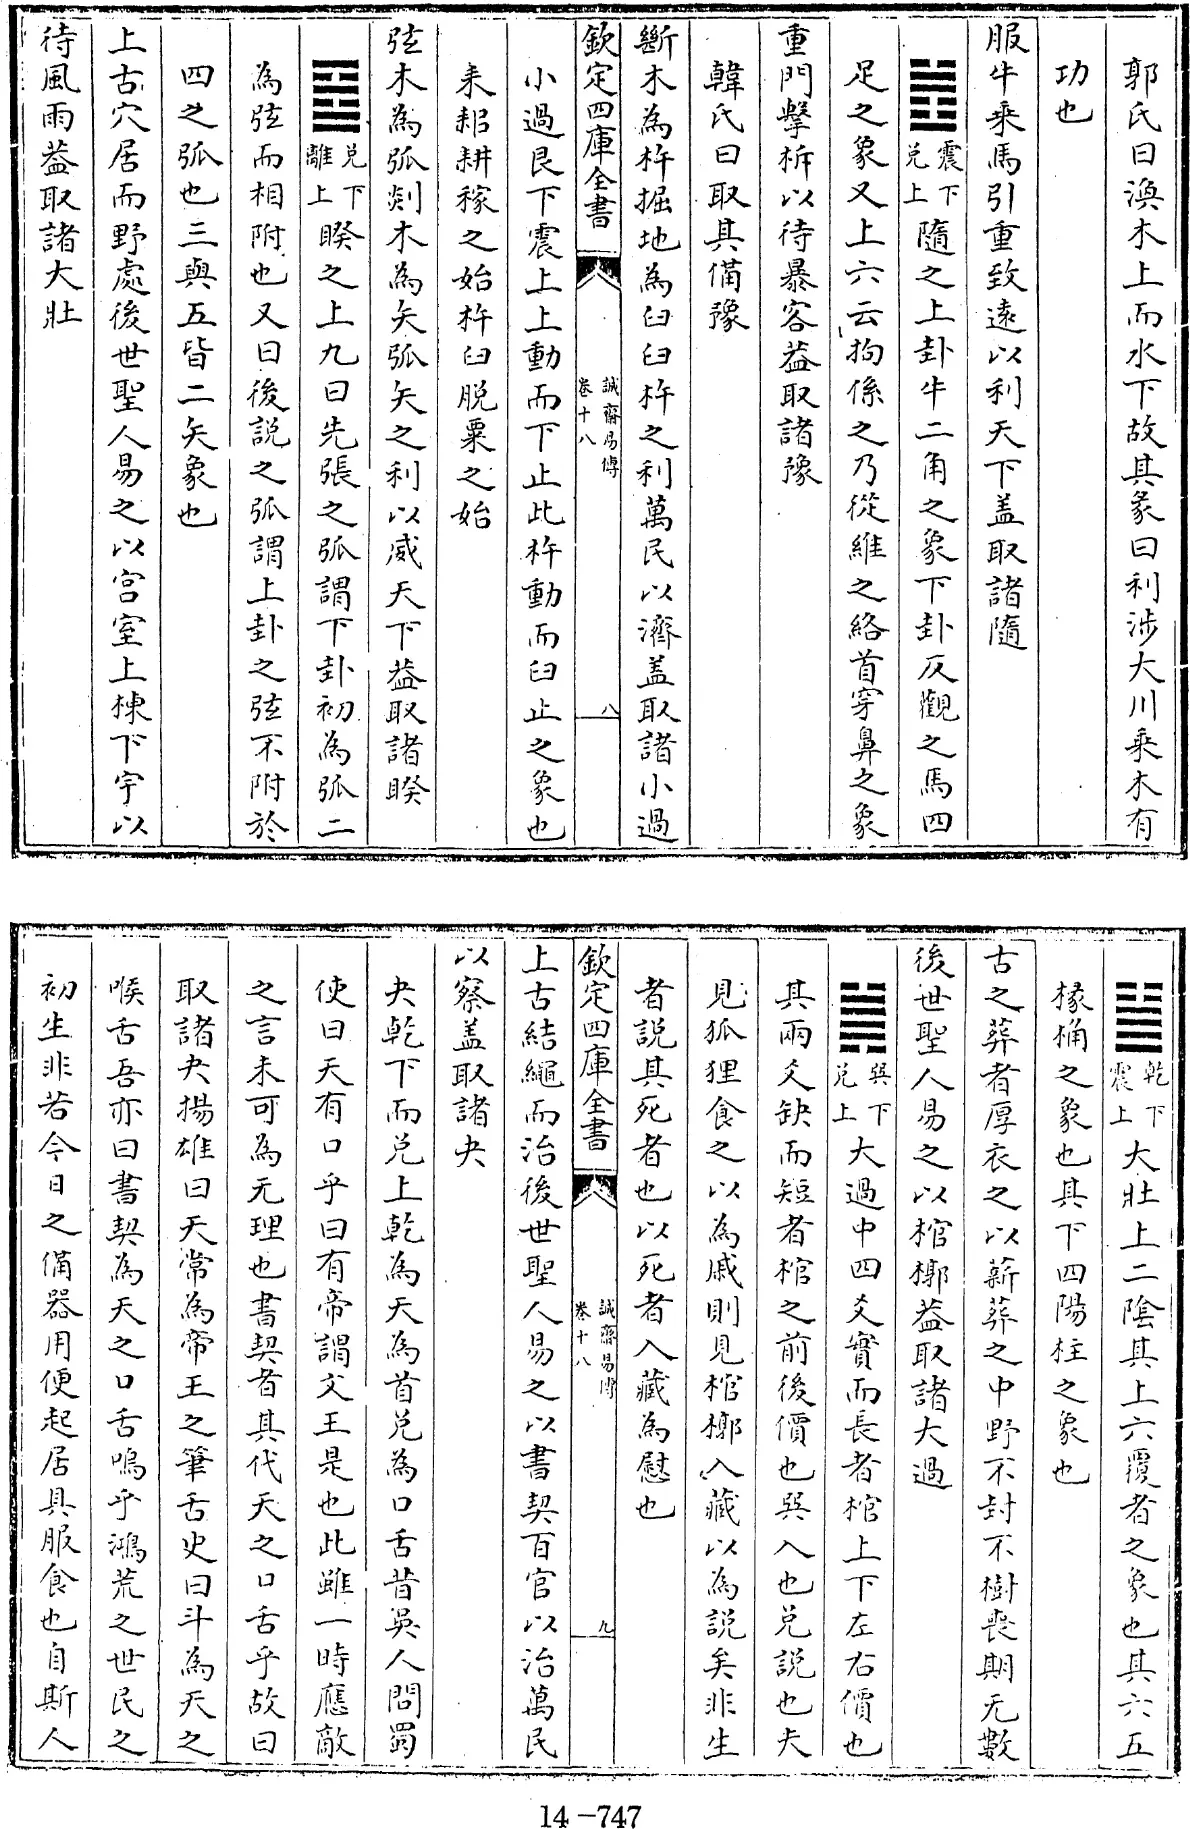 郭氏曰渙木上而水下故其彖曰利涉大川乘木有
功也
服牛乘馬引重致遠以利天下盖取諸隨
震下兑上隨之上卦牛二角之象下卦反觀之馬四
足之象又上六云拘係之乃從維之絡首穿鼻之象
重門擊柝以待暴客葢取諸豫
韓氏曰取其備豫
斷木為杵掘地為臼臼杵之利萬民以濟盖取諸小過
欽定四庫全書
誠齋易傳
卷十八
八
小過艮下震上上動而下止此杵動而臼止之象也
耒耜耕稼之始杵臼脱粟之始
弦木為弧剡木為矢弧矢之利以威天下葢取諸睽
兑下離上睽之上九曰先張之弧謂下卦初為弧二
為弦而相附也又曰後説之弧謂上卦之弦不附於
四之弧也三與五皆二矢象也
上古穴居而野處後世聖人易之以宫室上棟下宇以
待風雨葢取諸大壯
乾下震上大壯上二陰其上六覆者之象也其六五
椽桷之象也其下四陽柱之象也
古之葬者厚衣之以薪葬之中野不封不樹喪期无數
後世聖人易之以棺槨葢取諸大過
巽下兑上大過中四爻實而長者棺上下左右價也
其兩爻缺而短者棺之前後價也巽入也兑説也夫
見狐狸食之以為戚則見棺槨入藏以為説矣非生
者説其死者也以死者入藏為慰也
欽定四庫全書
誠齋易傳
卷十八
九
上古結繩而治後世聖人易之以書契百官以治萬民
以察盖取諸夬
夬乾下而兑上乾為天為首兑為口舌昔吳人問蜀
使曰天有口乎曰有帝謂父王是也此雖一時應敵
之言未可為无理也書契者其代天之口舌乎故曰
取諸夬揚雄曰天常為帝王之筆舌史曰斗為天之
喉舌吾亦曰書契為天之口舌嗚乎鴻荒之世民之
初生非若今日之備器用便起居具服食也自斯人
14-747